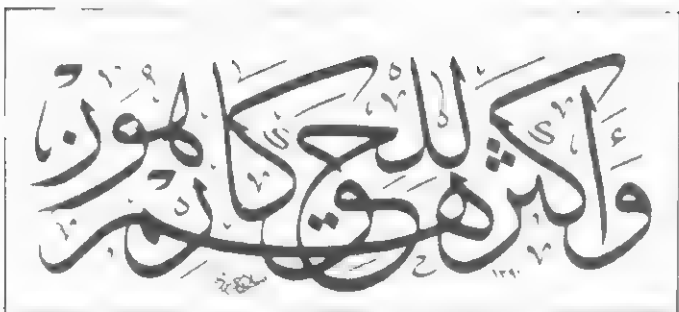 وَأَكْثَرُهُمْ لِلْحَقِّ كَارِهُونَ
١٣٩٠